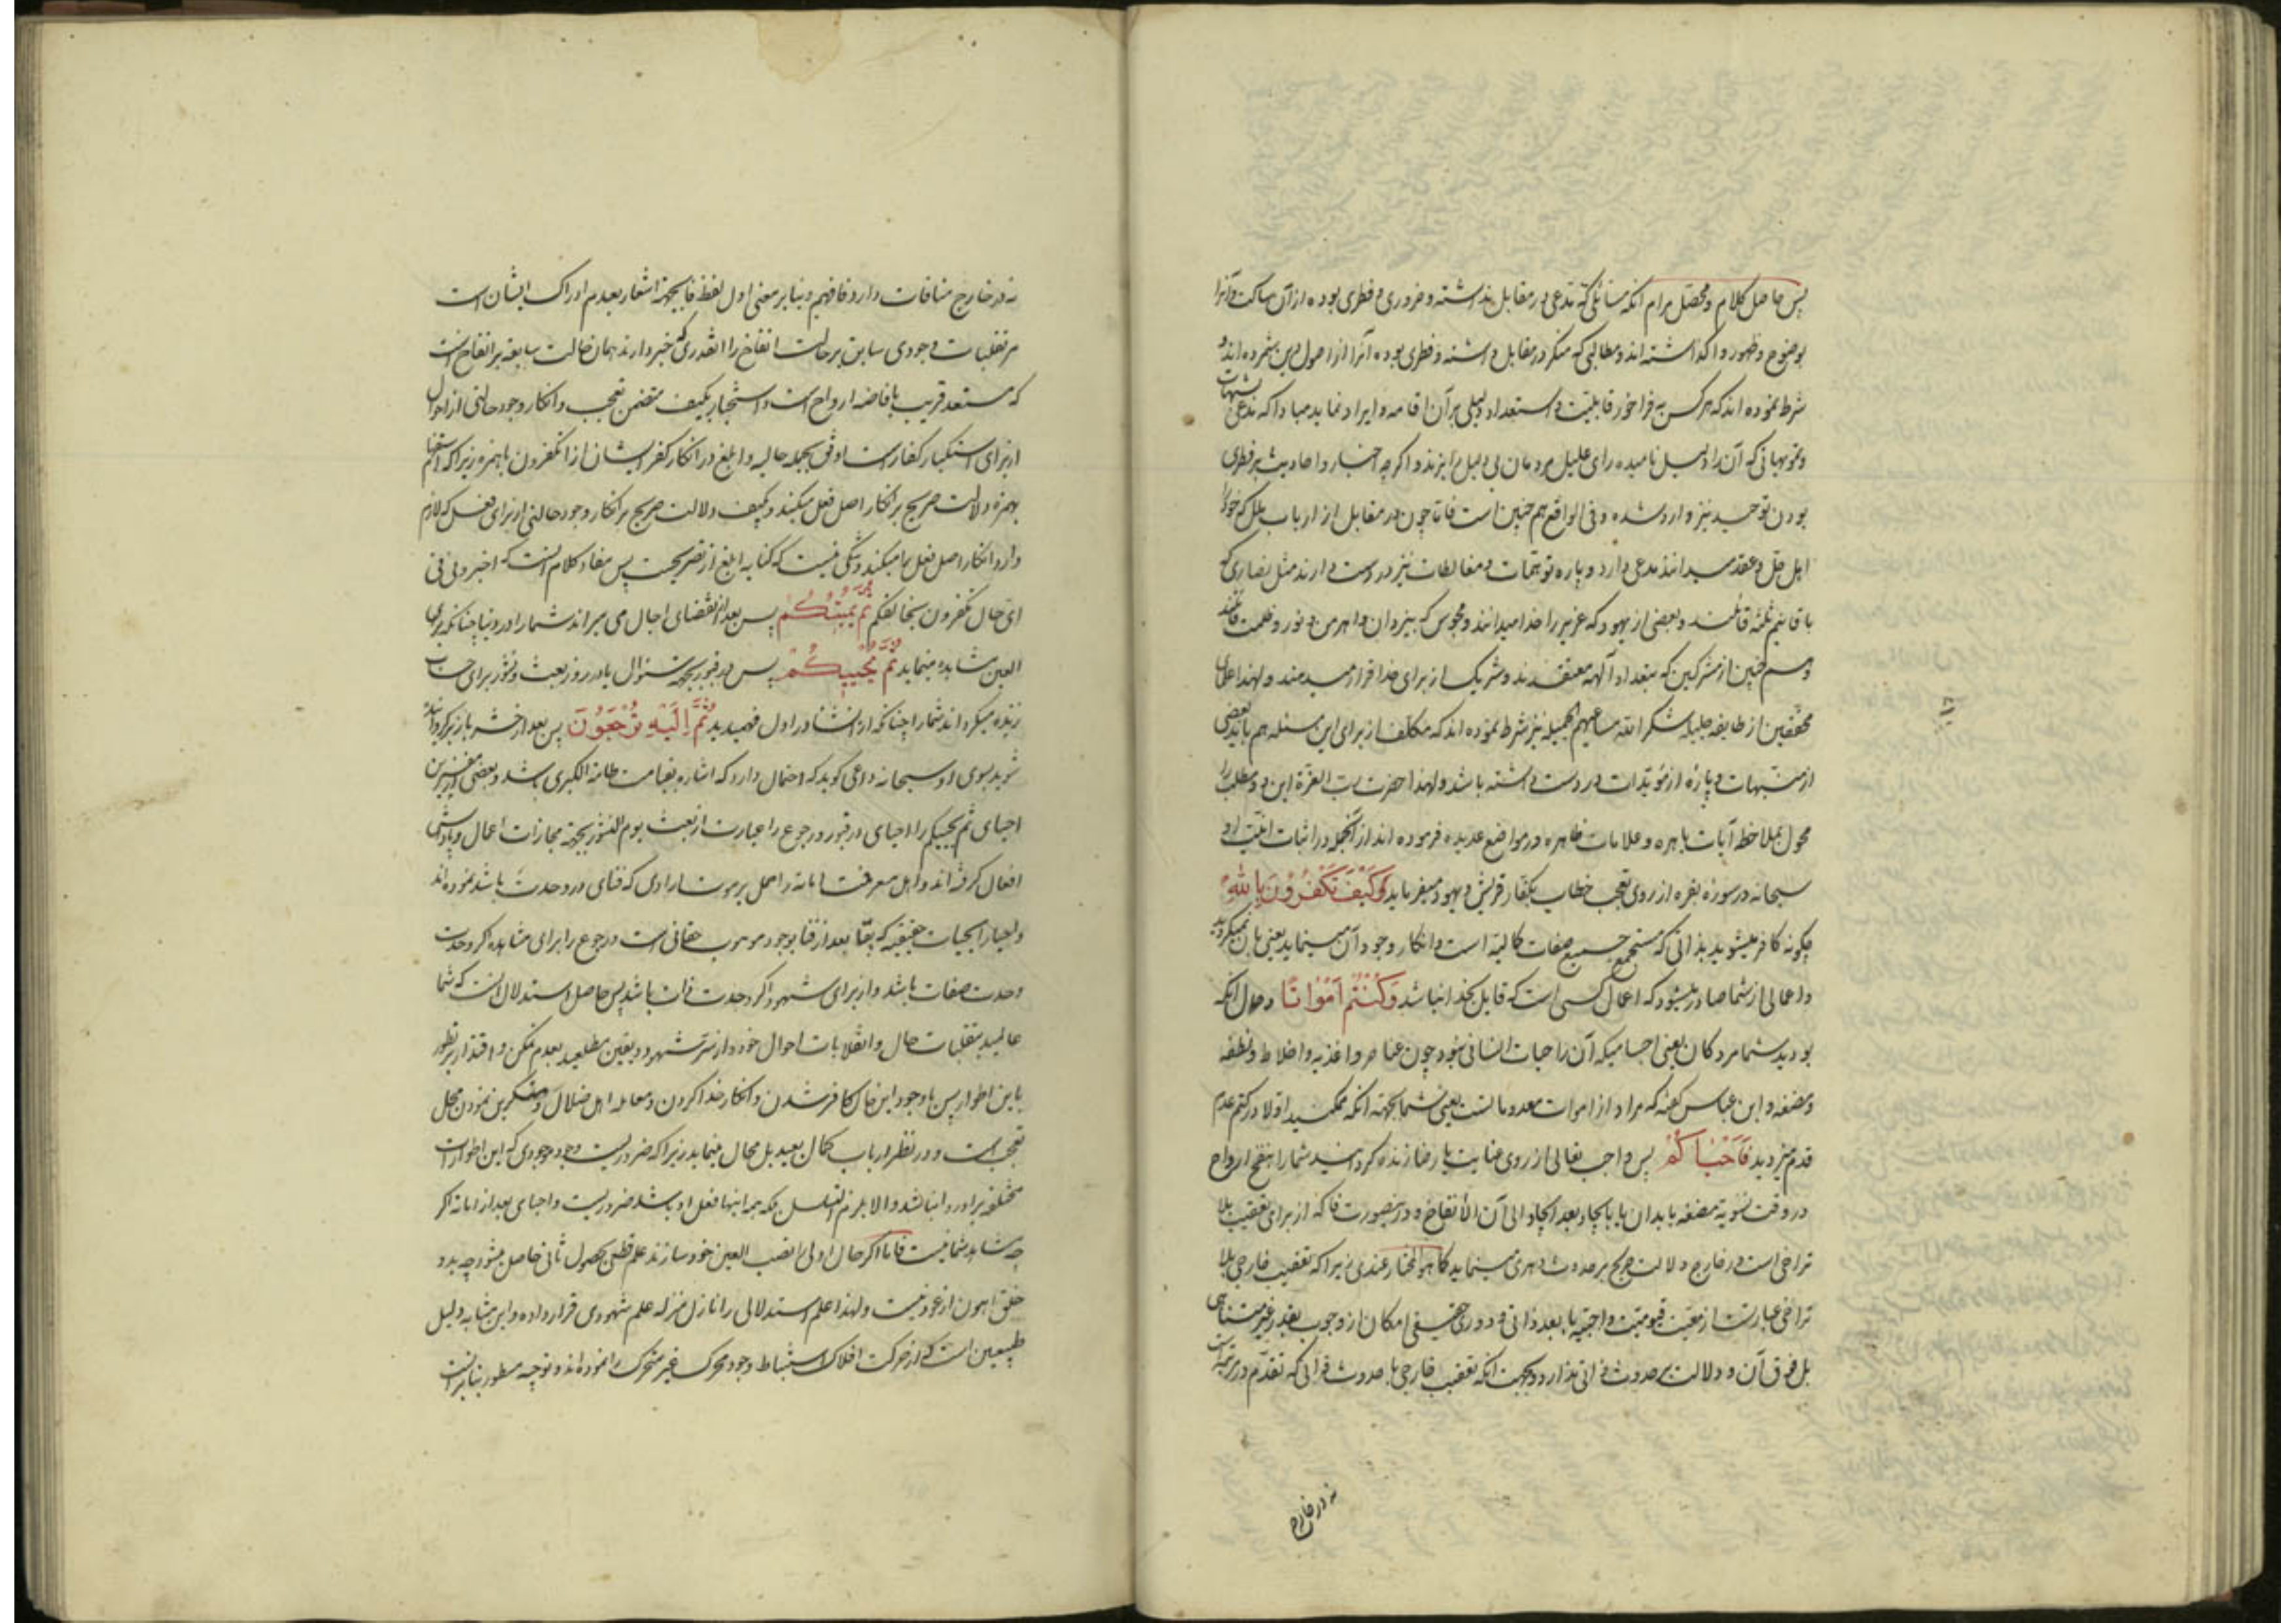 پس حاصل کلام و محصّل مرام آنکه مسائلی که مدعی در مقابل نداشته و ضروری و فطری بوده از آن ساکت و آنرا
بوضوح و ظهور واگذاشته اند و مطالبی که منکر در مقابل داشته و فطری بوده آنرا از اصول دین شمرده اند و
شرط نموده اند که هر کس به فراخور قابلیت و استعداد دلیلی بر آن اقامه و ایراد نماید مبادا که مدعی شبهات
و تمویهاتی که آن را دلیل نامیده رای علیل مردمان بی دلیل را بزند و اگر چه اخبار و احادیث بر فطری
بودن توحید نیز وارد شده و فی الواقع هم چنین است فاما چون در مقابل از ارباب ملل که خود را
اهل حل و عقد میدانند مدعی دارد و پاره توهمات و مغالطات نیز در دست دارند مثل نصاری که
باقانیم ثلثه قائلند و بعضی از یهود که عزیر را خدا میدانند و مجوس که بیزدان و اهرمن و نور و ظلمت قائلند
و هم چنین از مشرکین که بتعداد آلهه معتقدند و شریک از برای خدا قرار میدهند و لهذا علمای
محققین از طایفه جلیله شکر الله مساعیهم الجمیله نیز شرط نموده اند که مکلف از برای این مسئله هم باید بعضی
از منبهات و پاره از مؤیدات در دست داشته باشد و لهذا حضرت رب العزة این دو مطلب را
محول بملاحظه آیات باهره و علامات ظاهره در مواضع عدیده فرموده اند از آنجمله در اثبات انیّت او
سبحانه در سوره بقره از روی تعجب خطاب بکفار قریش و یهود میفرماید کَیْفَ تَکْفُرُوْنَ بِاللهِ
چگونه کافر میشوید بذاتی که مستجمع جمیع صفات کمالیه است و انکار وجود آن مینماید یعنی بآن نمیگروید
و اعمالی از شما صادر میشود که اعمال کسی است که قابل بخدا نباشد وَکُنْتُمْ اَمْوٰاتًا و حال آنکه
بودید شما مردگان یعنی اجسامیکه آن را حیات انسانی نبود چون عناصر و اغذیه و اخلاط و نطفه
و مضغه و ابن عباس گفته که مراد از اموات معدومانست یعنی شما بجهة آنکه ممکنید اولا در کتم عدم
قدم میزدید فَاَحْیٰاکُمْ پس واجب تعالی از روی عنایت یا رضا زنده گردانید شما را بنفخ ارواح
در وقت تسویه مضغه بابدان یا بایجاد بعد ایجاد الی آن الانقاخ و در نصورت فا که از برای تعقیب بلا
تراخی است در خارج دلالت صریح بر حدوث دهری مینماید کما هو المختار عندی زیرا که تعقیب خارجی بلا
تراخی عبارت از معیت قیومیت واجبیه با بعد ذاتی و دوری حقیقی امکان از وجوب بقدر غیر متناهی
بل فوق آن و دلالت بر حدوث ذاتی ندارد بجهت آنکه تعقیب خارجی با حدوث ذاتی که تقدم در مرتبه است
نه در خارج
نه در خارج منافات دارد فافهم و بنابر معنی اول لفظ فا بجهة اشعار بعدم ادراک ایشان است
مر تقلبات وجودی سابق بر حالت انفاخ را القدری که خبر دارند همان حالت سابقه بر انفاخ است
که مستعد قریب بافاضه ارواح است و استخبار بکیف متضمن تعجب و انکار وجود حالتی از احوال
از برای استکبار کفار است اوفق بجمله حالیه و ابلغ در انکار کفر ایشان از اتکفرون باهمزه زیرا که استفهام
بهمزه دلالت صریح بر انکار اصل فعل میکند و کیف دلالت صریح بر انکار وجود حالتی از برای فعل که لازم
دارد انکار اصل فعل را میکند و شکی نیست که کنایه ابلغ از تصریحست پس مفاد کلام آنست که اخبرونی فی
ای حال تکفرون بخالقکم ثُمَّ یُمیتُکُمْ پس بعد از انقضای اجال می میراند شما را در دنیا چنانکه برای
العین مشاهده مینماید ثُمَّ یُحْیِیکُمْ پس در قبور بجهة سئوال یا در روز بعث و نشور برای حساب
زنده میگرداند شما را چنانکه از انشاء در اول فهمیدید ثُمَّ اِلَیْهِ تُرْجَعُوْنَ پس بعد از حشر باز گردانیده
شوید بسوی او سبحانه داعی گوید که احتمال دارد که اشاره بقیامت طامة الکبری باشد و بعضی از مفسرین
احیای ثم یحییکم را احیای در قبور و رجوع را عبارت از بعث یوم النشور بجهة مجازات اعمال و پاداش
افعال گرفته اند و اهل معرفت اماته را حمل بر موت ارادی که فنای در وحدت باشد نموده اند
و احیا را بحیات حقیقیه که بقاء بعد از فنا بوجود موهوب حقانی است و رجوع را برای مشاهده اگر وحدت
وحدت صفات باشد و از برای شهود اگر وحدت ذات باشد پس حاصل استدلال آنست که شما
عالمید بتقلبات حال و انقلابات احوال خود و از سر شهود و یقین مطلعید بعدم تمکن و اقتدار بر تطور
باین اطوار پس با وجود این حال کافر شدن و انکار خدا کردن و معامله اهل ضلال و منکرین نمودن محل
تعجب است و در نظر ارباب کمال بعید بل محال مینماید زیرا که ضروریست وجود موجودی که این اطوارات
مختلفه بر او روا نباشد و الا یلزم التسلسل بلکه همه اینها فعل او باشد ضروریست و احیای بعد از اماته اگر
چه مشاهد شما نیست فاما اگر حال اولی را نصب العین خود سازند علم قطعی بحصول ثانی حاصل میشود چه بدو
خلق اهون از عود نیست و لهذا علم استدلالی را نازل منزله علم شهودی قرار داده و این بمثابه دلیل
طبیعین است که از حرکت افلاک استنباط وجود محرک غیر متحرک را نموده اند و توجیه مسطور بنابر آنست